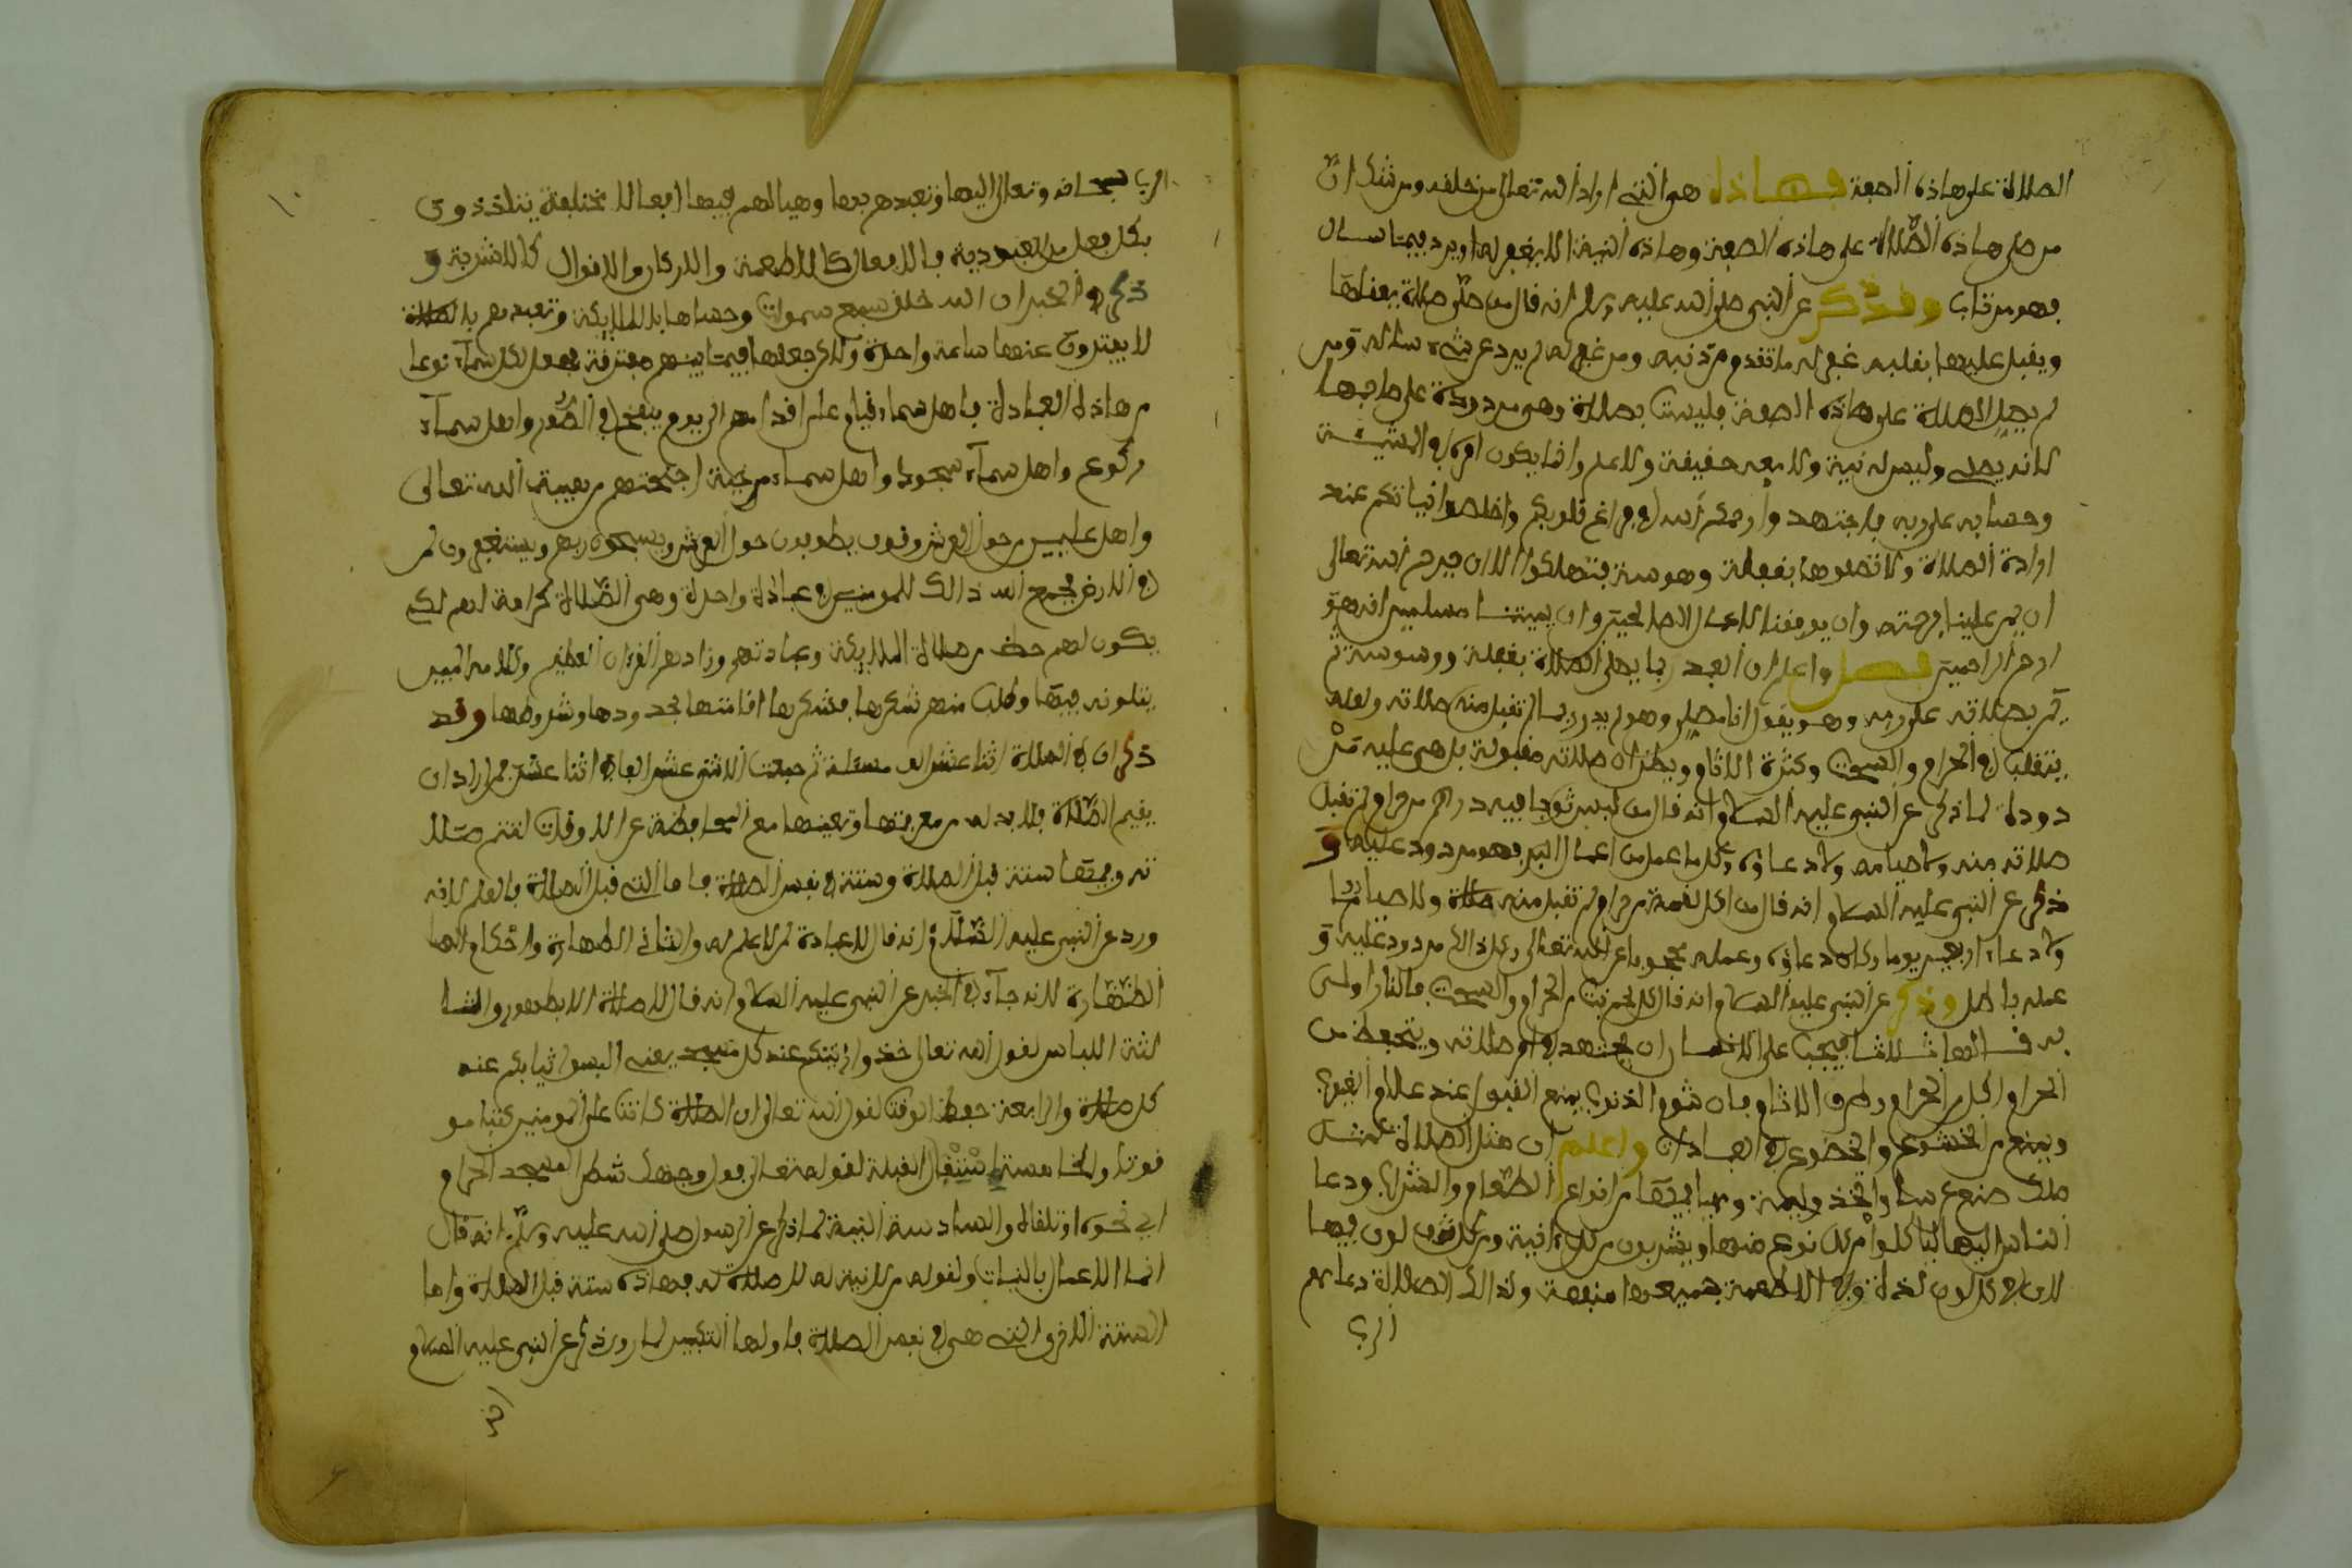 الصلاة على هاذه الصفة فهاذه هي التي اراد الله تعالى من خلفه ومن شك ان
من صلى هاذه الصلاة على هاذه الصفة وهاذه النية الا يغفر له او يرد فيما سال
فهو مرتاب وقد ذكر عن النبي صلى الله عليه وسلم انه قال من صلى صلاة يعقلها
ويقبل عليها بقلبه غفر له ما تقدم من ذنبه ومن غفر له لم يرد عن شيء ساله ومن
لم يصل الصلاة على هاذه الصفة فليست بصلاة وهي مردودة على صاحبها
لانه يصلي وليس له نية ولا معه حقيقة ولا علم وانما يكون امره في المشيئة
وحسابه على ربه فاجتهدوا رحمكم الله في فراغ قلوبكم واخلصوا نياتكم عند
ارادة الصلاة ولا تصلوها بغفلة وهوسة فتهلكوا الا ان يرحم الله تعالى
ان يمن علينا برحمته وان يوفقنا للاعمال الصالحة وان يميتنا مسلمين انه هو
ارحم الراحمين فصل واعلم ان العبد ربما يصلي الصلاة بغفلة ووسوسة ثم
يمر بصلاته على ربه وهو يقول انا مصل وهو لم يدر بما تقبل منه صلاته ولعله
يتقلب في الحرام والسحت وكثرة الاثام ويظن ان صلاته مقبولة بل هي عليه مر
دودة لما ذكر عن النبي عليه السلام انه قال من لبس ثوبا فيه درهم من حرام لم تقبل
صلاته منه ولا صيامه ولا دعاؤه وكل ما عمل من اعمال البر فهو مردود عليه و
ذكر عن النبي عليه السلام انه قال من اكل لقمة من حرام لم تقبل منه صلاة ولا صيام
ولا دعاء اربعين يوما وكان دعاؤه وعمله محجوبا عن الله تعالى وكل ذالك مردود عليه و
عمله باطل وذكر عن النبي عليه السلام انه قال كل لحم نبت من الحرام والسحت فالنار اولى
به قالها ثلاثا فيجب على الانسان ان يجتهد في امر صلاته ويتحفظ من
الحرام واكل الحرام وطرق الاثام فان شؤم الذنوب يمنع القبول عند علام الغيوب
ويمنع من الخشوع والخضوع في العبادات واعلم ان مثل الصلاة كمثل
ملك صنع عرسا واتخذ وليمة وهيا فيها من انواع الطعام والشراب ودعا
الناس اليها لياكلوا من كل نوع منها ويشربون من كل انية ومن كل لون فيها
لان في كل لون لذة وفي الاطعمة جميعها منفعة وكذالك الصلاة دعاهم
الرب
الرب سبحانه وتعالى اليها وتعبدهم بها وهيا لهم فيها افعالا مختلفة يتلذذون
بكل فعل من العبودية فالافعال كالاطعمة والاذكار والاقوال كالاشربة و
ذكر في الخبر ان الله خلق سبع سموات وحشاها بالملايكة وتعبدهم بالصلاة
لا يفترون عنها ساعة واحدة ولاكن جعلها فيما بينهم مفترقة فجعل لكل سماء نوعا
من هاذه العبادة فاهل سماء قيام على اقدامهم الى يوم ينفخ في الصور واهل سماء
ركوع واهل سماء سجود واهل سماء مرخية اجنحتهم من هيبة الله تعالى
واهل عليين من حول العرش وقوف يطوفون حول العرش ويسبحون ربهم ويستغفرون لمن
في الارض فجمع الله ذالك للمومنين في عبادة واحدة وهي الصلاة كرامة لهم لكي
يكون لهم حظ من صلاة الملايكة وعبادتهم وزادهم القرءان العظيم وكلامه المبين
يتلونه فيها وطلب منهم شكرها فشكرها اقامتها بحدودها وشروطها وقد
ذكر ان في الصلاة اثنا عشر الف مسئلة ثم جمعت الاثنى عشر الفا في اثنا عشر فمن اراد ان
يقيم الصلاة فلا بد له من معرفتها وتعيينها مع المحافظة على الاوقات لتتم صلا
ته وفيها ستة قبل الصلاة وستة في نفس الصلاة فاما التي قبل الصلاة فالعلم لانه
ورد عن النبي عليه الصلاة انه قال لا عبادة لمن لا علم له والثاني الطهارة واحكامها
الطهارة لانه جاء في الخبر عن النبي عليه السلام انه قال لا صلاة الا بطهور والثا
لثة اللباس لقول الله تعالى خذوا زينتكم عند كل مسجد يعني البسوا ثيابكم عند
كل صلاة والرابعة حفظ الوقت لقول الله تعالى ان الصلاة كانت على المومنين كتبا مو
قوتا والخامسة استقبال القبلة لقوله تعالى فول وجهك شطر المسجد الحرام
اي نحوه وتلقاه والسادسة النية لما ذكر عن الرسول صلى الله عليه وسلم انه قال
انما الاعمال بالنيات ولقوله من لا نية له لا صلاة له فهاذه ستة قبل الصلاة واما
الستة الاخرى التي هي في نفس الصلاة فاولها التكبير لما ورد ذكر عن النبي عليه السلام